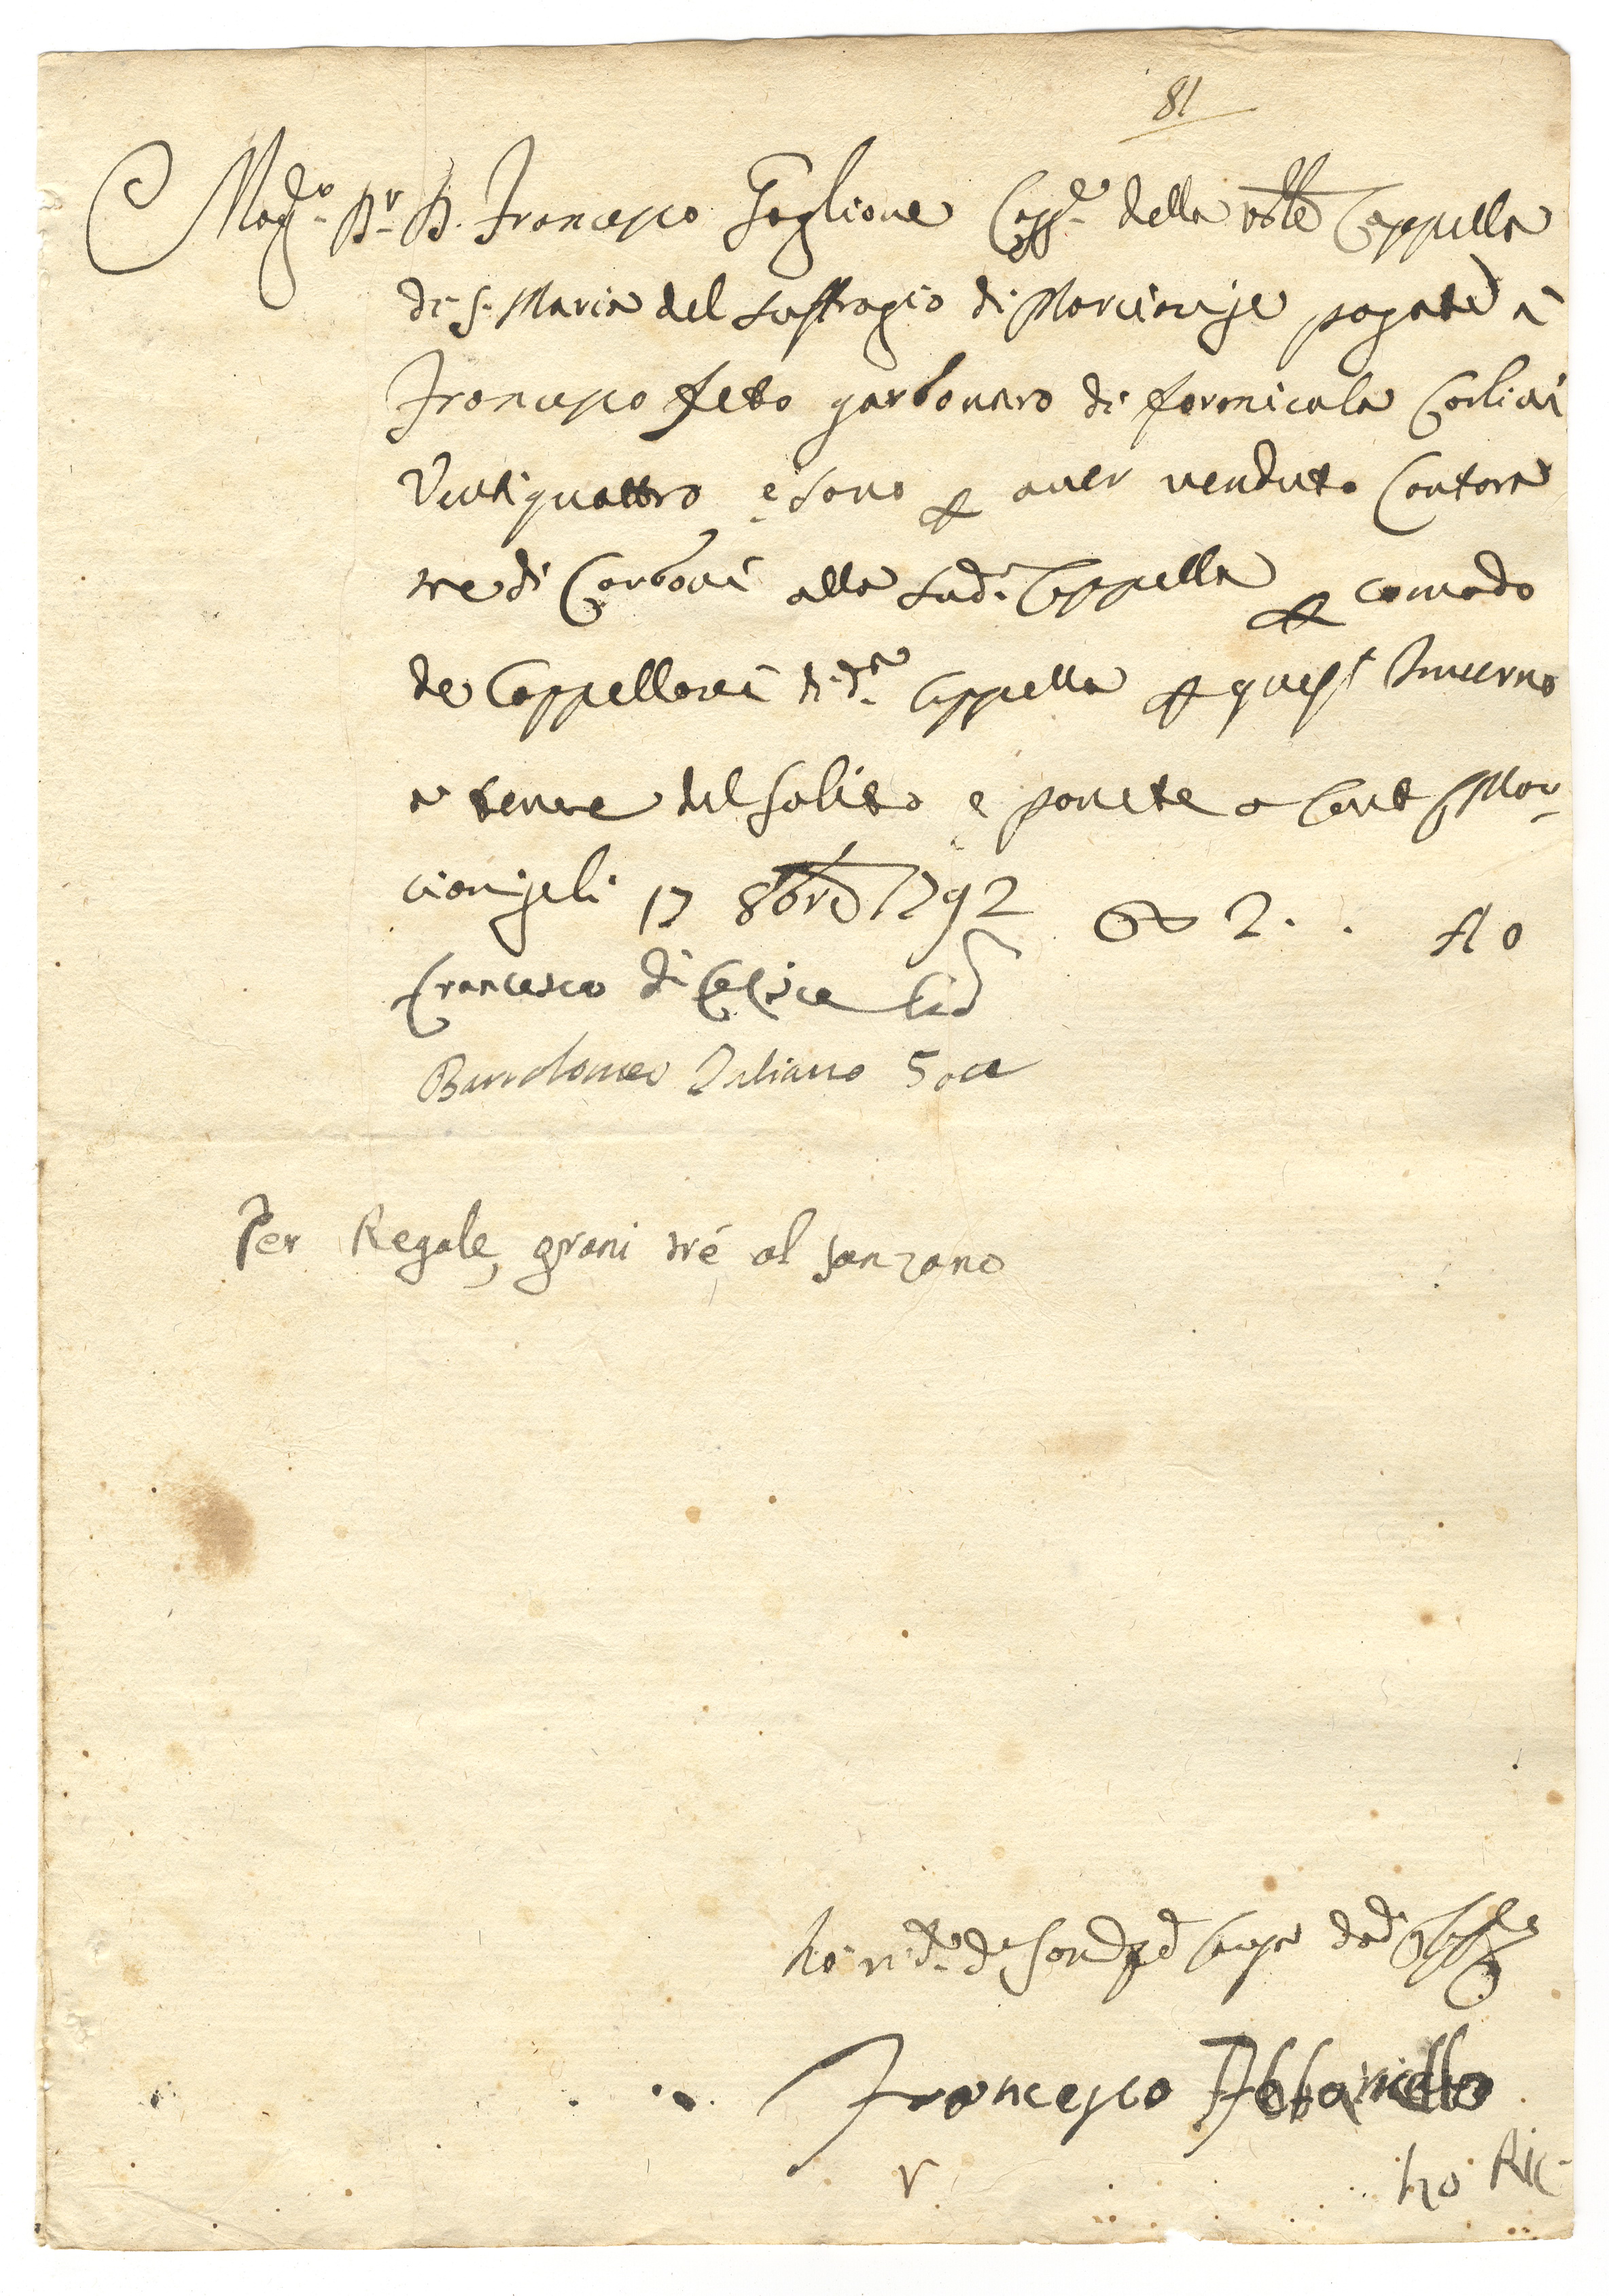 81
Mag.co Sr. D. Francesco Taglione Capp.o della Ven.le Cappella
di S. Maria del Suffragio di Marcianise pagate à
Francesco feto garbonaro di formicola Carlini
Ventiquattro, e sono per aver venduto Cantara
tre di Carboni alla Sud.a Cappella per comodo
de Cappellani di d.a Cappella per quest Inverno
a tenore del solito e ponete a Cont Mar-
cianise li 17 8bre 1792 2. . 40
Francesco di Felice
Bartolomeo Iuliano
Per Regale, grani tré al sanzano
Francesco Abbaticello
ho Ric